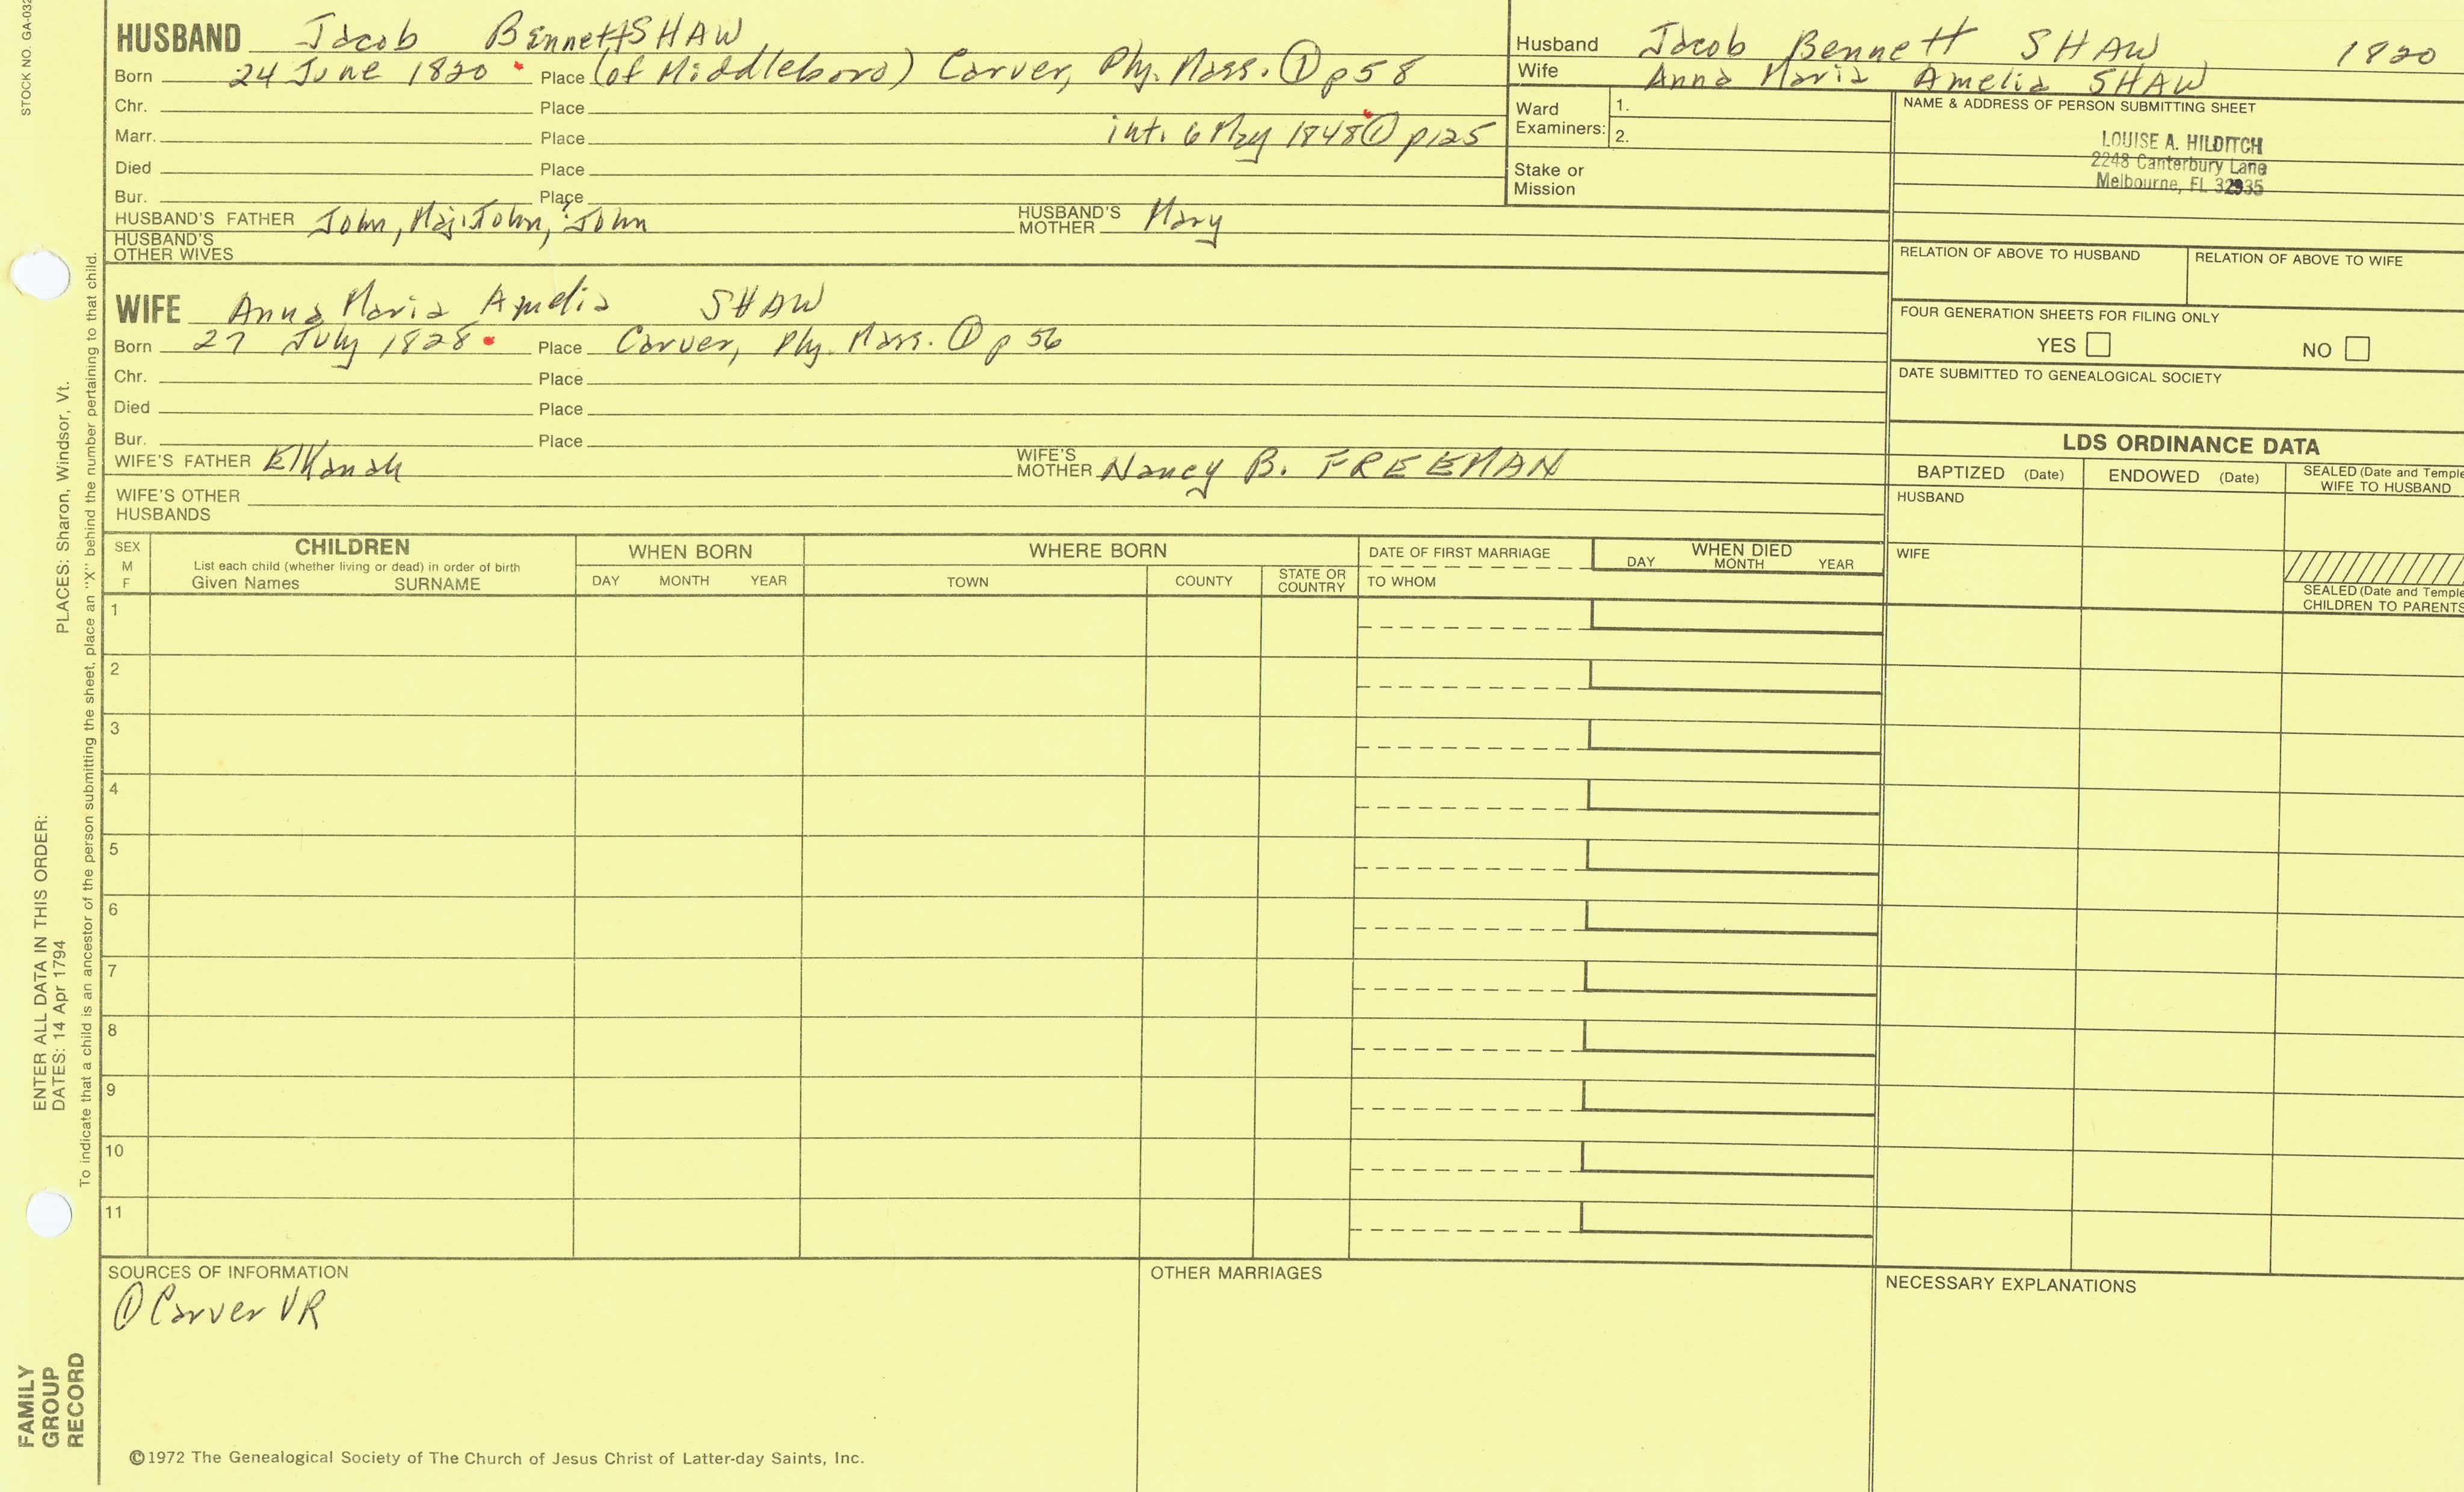 STOCK NO. GA-032
HUSBAND Jacob Bennett SHAW
Born 24 June 1820 Place (of Middleboro) Carver, Ply. Mass. ① p58
Chr. Place
Marr. Place int. 6 May 1848 ① p125
Died Place
Bur. Place
HUSBAND'S FATHER John, Maj. John, ? John HUSBAND'S MOTHER Mary
HUSBAND'S OTHER WIVES
WIFE Anna Maria Amelia SHAW
Born 27 July 1828 Place Carver, Ply. Mass. ① p 56
Chr. Place
Died Place
Bur. Place
WIFE'S FATHER Elkanah WIFE'S MOTHER Nancy B. FREEMAN
WIFE'S OTHER HUSBANDS
Husband Jacob Bennett SHAW 1820
Wife Anna Maria Amelia SHAW
Ward Examiners: 1.
2.
Stake or Mission
NAME & ADDRESS OF PERSON SUBMITTING SHEET
LOUISE A. HILDITCH
2248 Canterbury Lane
Melbourne, FL 32935
RELATION OF ABOVE TO HUSBAND RELATION OF ABOVE TO WIFE
FOUR GENERATION SHEETS FOR FILING ONLY
YES NO
DATE SUBMITTED TO GENEALOGICAL SOCIETY
LDS ORDINANCE DATA
BAPTIZED (Date) ENDOWED (Date) SEALED (Date and Temple
WIFE TO HUSBAND
HUSBAND
WIFE
SEALED (Date and Temple
CHILDREN TO PARENTS
SEX
M
F
CHILDREN
List each child (whether living or dead) in order of birth
Given Names SURNAME
WHEN BORN
DAY MONTH YEAR
WHERE BORN
TOWN COUNTY STATE OR COUNTRY
DATE OF FIRST MARRIAGE
TO WHOM
WHEN DIED
DAY MONTH YEAR
1
2
3
4
5
6
7
8
9
10
11
SOURCES OF INFORMATION
① Carver VR
OTHER MARRIAGES
NECESSARY EXPLANATIONS
©1972 The Genealogical Society of The Church of Jesus Christ of Latter-day Saints, Inc.
ENTER ALL DATA IN THIS ORDER:
DATES: 14 Apr 1794
PLACES: Sharon, Windsor, Vt.
To indicate that a child is an ancestor of the person submitting the sheet, place an "X" behind the number pertaining to that child.
FAMILY
GROUP
RECORD